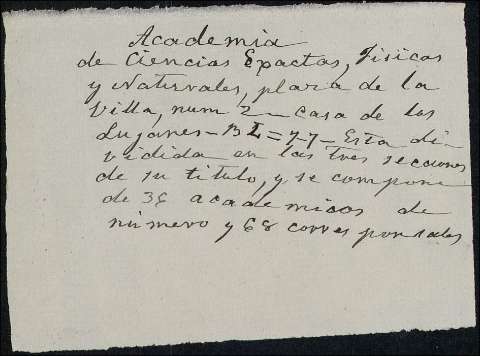 Academia
de Ciencias Exactas, Fisicas
y Naturales, plaza de la
Villa, num 2 - casa de los
Lujanes - Esta di
vidida en las tres secciones
de su titulo, y se compone
de 36 academicos de
número y 68 corresponsales